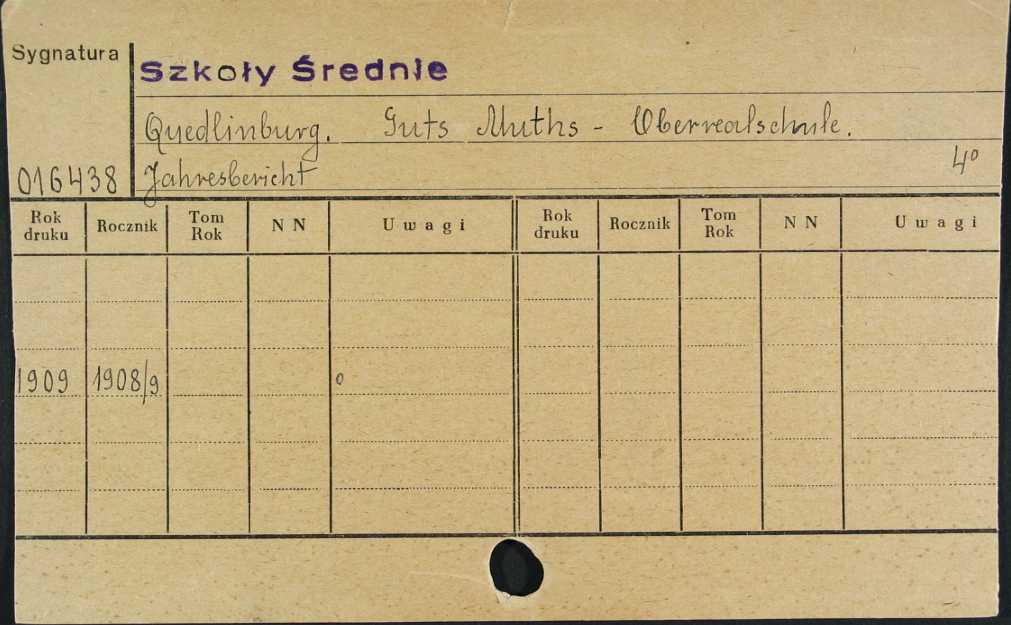 Sygnatura
Szkoły Średnie
Quedlinburg. Guts Muths - Oberrealschule.
016438 Jahresbericht 4°
Rok druku Rocznik Tom Rok NN Uwagi Rok druku Rocznik Tom Rok NN Uwagi
1909 1908/9 o